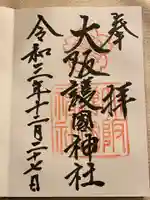 奉拝
大阪護國神社
令和二年十二月二十七日